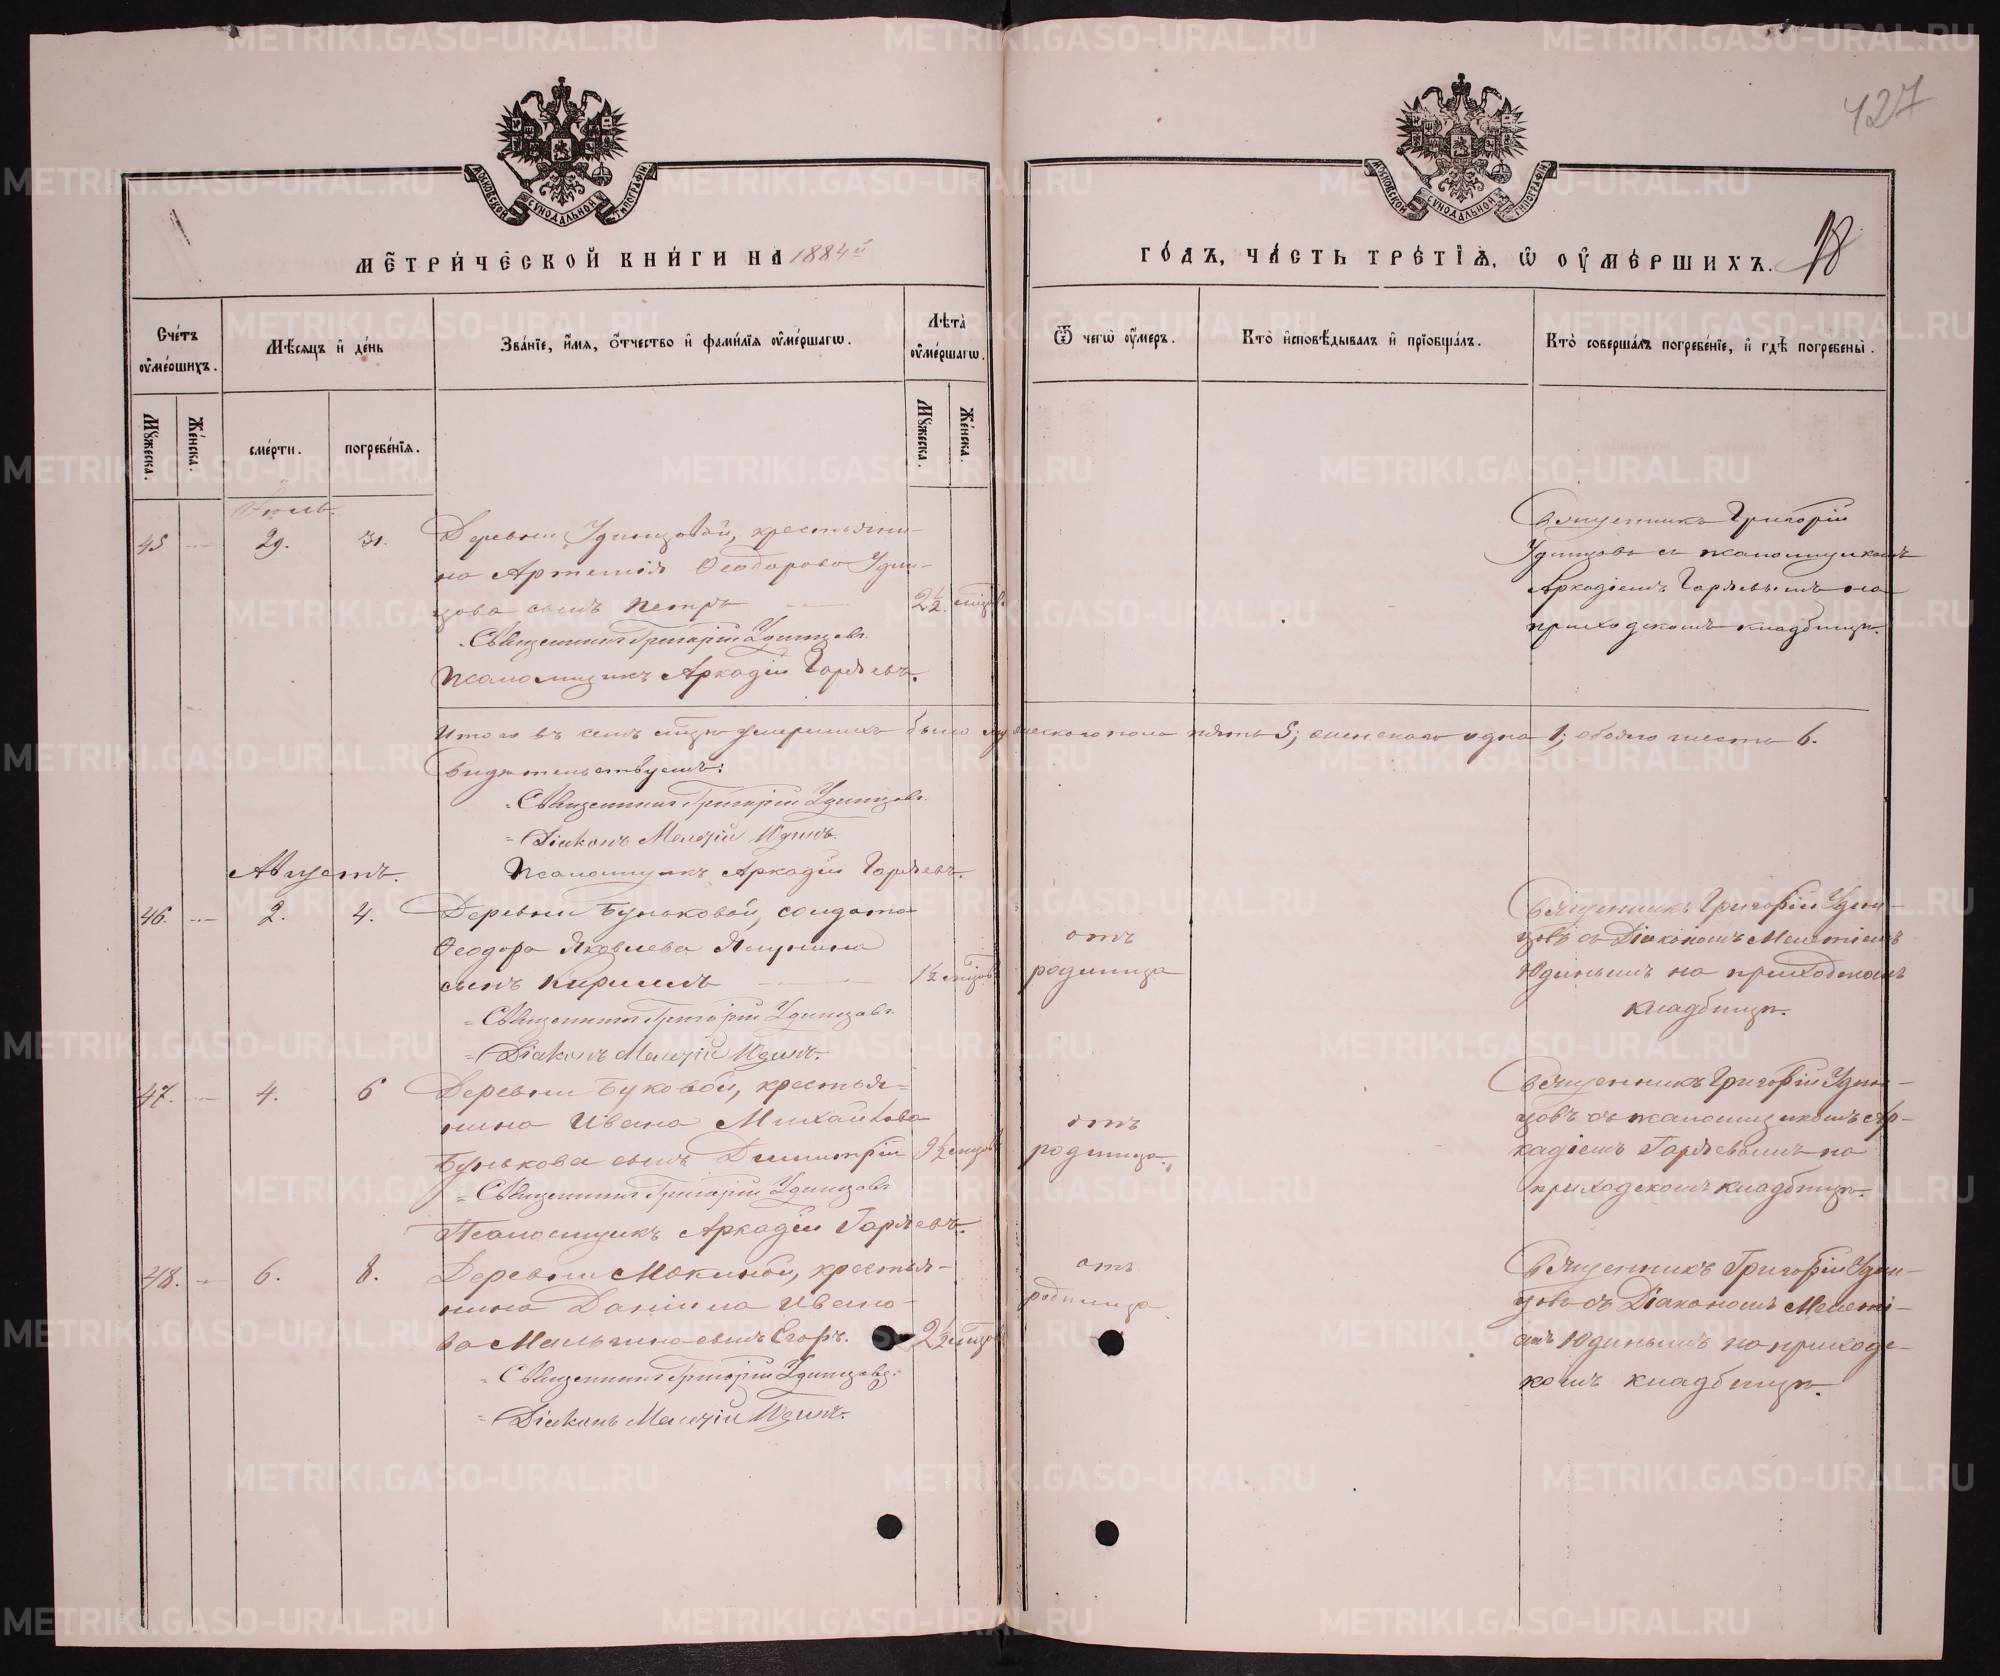 427
МОСКОВСКОЙ СѴНОДАЛЬНОЙ ТИПОГРАФІИ
МОСКОВСКОЙ СѴНОДАЛЬНОЙ ТИПОГРАФІИ
МЕТРИ́ЧЕСКОЙ КНИ́ГИ НА 1884й
ГО́ДЪ, ЧА́СТЬ ТРЕ́ТІѦ, Ѡ ОУ҆МЕ́РШИХЪ.
18
Сче́тъ оу҆ме́ршихъ.
Мѣ́сяцъ и҆ де́нь
Зва́нїе, и҆́мя, ѻ҆́тчество и҆ фами́лїя оу҆ме́ршагѡ.
Лѣ́та оу҆ме́ршагѡ.
Ѿ чегѡ̀ оу҆́меръ.
Кто̀ и҆сповѣ́дывалъ и҆ прїобща́лъ.
Кто̀ соверша́лъ погребе́нїе, и҆ гдѣ̀ погребены̀.
Мꙋжеска.
Же́нска.
сме́рти.
погребе́нїя.
Мꙋжеска.
Же́нска.
Іюль.
45 — 29. 31. Деревни Удинцовой, крестьяни-
на Артемія Ѳеодорова Удин-
цова сынъ Петръ — 2½ мѣсяц.
Священникъ Григорій Удинцовъ.
Псаломщикъ Аркадій Горяевъ.
Священникъ Григорій
Удинцовъ съ псаломщикомъ
Аркадіемъ Горяевымъ на
приходскомъ кладбищѣ.
Итого въ семъ мѣсяцѣ умершихъ было мужескаго пола пять 5; женскаго одна 1; обоего шесть 6.
Свидѣтельствуемъ:
Священникъ Григорій Удинцовъ.
Діаконъ Мелетій Юдинъ.
Псаломщикъ Аркадій Горяевъ.
Августъ.
46. — 2. 4. Деревни Буньковой, солдата
Ѳеодора Яковлева
сынъ Кириллъ — 1½ мѣсяц.
Священникъ Григорій Удинцовъ.
Діаконъ Мелетій Юдинъ.
отъ
родимца
Священникъ Григорій Удин-
цовъ съ Діакономъ Мелетіемъ
Юдинымъ на приходскомъ
кладбищѣ.
47. — 4. 6 Деревни Буковой, крестья-
нина Ивана Михайлова
Бунькова сынъ Димитрій мѣсяц.
Священникъ Григорій Удинцовъ.
Псаломщикъ Аркадій Горяевъ.
отъ
родимца.
Священникъ Григорій Удин-
цовъ съ псаломщикомъ Ар-
кадіемъ Горяевымъ на
приходскомъ кладбищѣ.
48. — 6. 8. Деревни Мокиной, крестья-
нина Даніила Ивано-
ва Мальгина сынъ Егоръ. 2½ мѣсяц.
Священникъ Григорій Удинцовъ.
Діаконъ Мелетій Юдинъ.
отъ
родимца
Священникъ Григорій Удин-
цовъ съ Діакономъ Мелеті-
емъ Юдинымъ на приходс-
комъ кладбищѣ.
METRIKI.GASO-URAL.RU